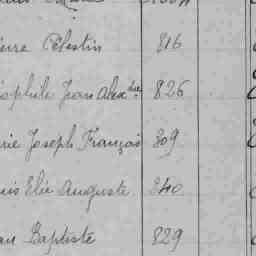 erre Célestin 816
éophile Jean Alexdre 826
rie Joseph François 309
uis Elie Auguste 340
an Baptiste 829